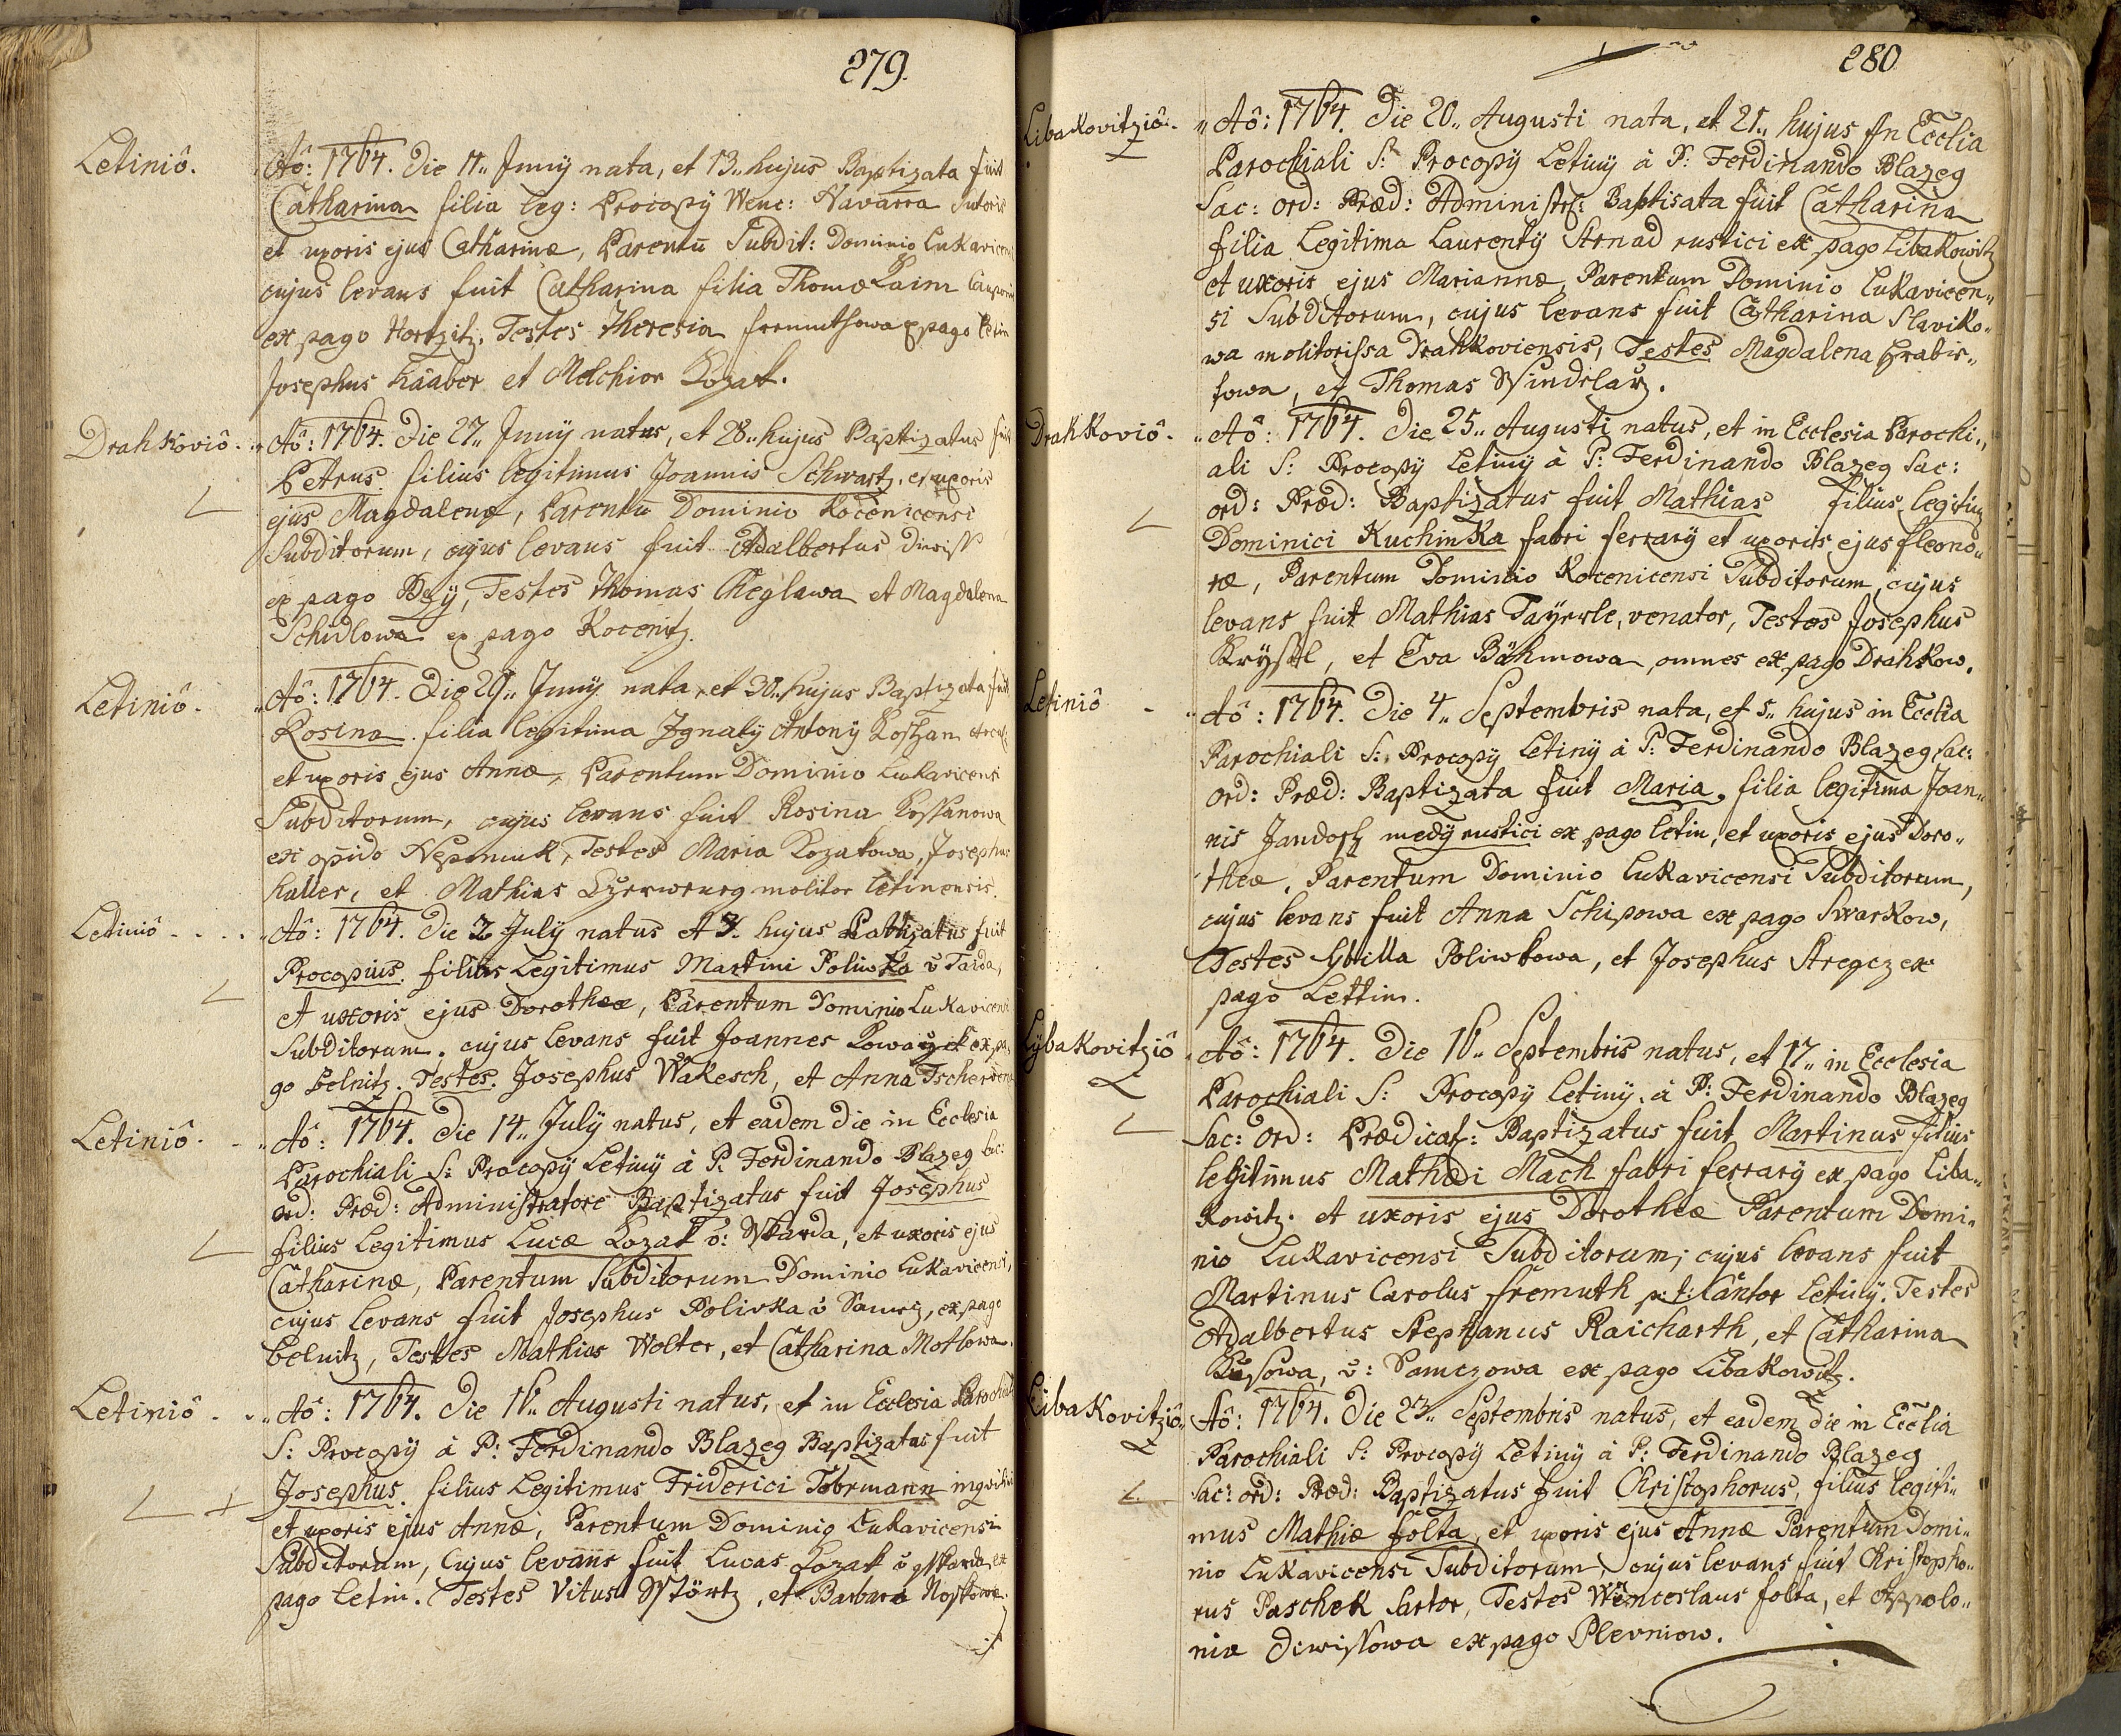 279.
Letiniô.
Aô: 1764. Die 11,, Junij nata, et 13,, hujus Baptizata fuit
Catharina filia leg: Procopij Wenc: Navarra Sutoris
et uxoris ejus Catharinæ, Parentū Subdit: Dominio Lukavicensi
cujus levans fuit Catharina filia Thomæ Paim
ex pago Hortzitz, Testes Theresia ex pago Letin
Josephus Haaber et Melchior Kozak.
Drahkoviô.
Aô: 1764. Die 27,, Junij natus, et 28,, hujus Baptizatus fuit
Petrus filius legitimus Joannis Schwartz, et uxoris
ejus Magdalenæ, Parentū Dominio Rocenicensi
Subditorum, cujus levans fuit Adalbertus Diwiss
ex pago Bzÿ, Testes Thomas Cheglawa et Magdalena
Schidlowa ex pago Rocenitz.
Letiniô.
Aô: 1764. Die 29,, Junij nata, et 30,, hujus Baptizata fuit
Rosina filia legitima Ignatij Antonij Kostzan
et uxoris ejus Annæ, Parentum Dominio Lukavicensi
Subditorum, cujus levans fuit Rosina Kossanowa
ex opido Nepomuk, Testes Maria Kozakowa, Josephus
Haller, et Mathias molitor Letinensis.
Letiniô
Aô: 1764. Die 2 July natus et 3. hujus Batizatus fuit
Procopius filius Legitimus Martini Poliwka v̄ Taida,
et uxoris ejus Dorotheæ, Parentum Dominio Lukavicensi
Subditorum. cujus levans fuit Joannes Kowařzik ex pa-
go Belnitz. Testes. Josephus Wakesch, et Anna
Letiniô.
Aô: 1764. Die 14,, July natus, et eadem die in Ecclesia
Parochiali S: Procopÿ Letinÿ à P: Ferdinando Blazeg Sac:
ord: Præd: Administratore Baptizatus fuit Josephus
filius Legitimus Lucæ Kozak v̄: Skarda, et uxoris ejus
Catharinæ, Parentum Subditorum Dominio Lukavicensi,
cujus levans fuit Josephus Polivka v̄ Samez, ex pago
Belnitz, Testes Mathias Wolter, et Catharina Mothowa.
Letiniô
Aô: 1764. Die 16,, Augusti natus, et in Ecclesia Parochiali
S: Procopÿ à P: Ferdinando Blazeg Baptizatus fuit
Josephus filius Legitimus Friderici Tobrmann
et uxoris ejus Annæ, Parentum Dominio Lukavicensi
Subditorum, Cujus levans fuit Lucas Kozak v̄ Skarda ex
pago Letin. Testes Vitus Störtz, et Barbara Noskowa.
280
Libakovitziô.
Aô: 1764. Die 20,, Augusti nata, et 21,, hujus in Ecclia
Parochiali S: Procopÿ Letinÿ à P: Ferdinando Blazeg
Sac: ord: Præd: Administr: Baptisata fuit Catharina
filia Legitima Laurentÿ Strnad rustici ex pago Libakowitz
et uxoris ejus Mariannæ, Parentum Dominio Lukavicen,,
si Subditorum, cujus levans fuit Catharina Slaviko,,
wa molitorissa Drahkoviensis, Testes Magdalena Hrabis,,
sowa, et Thomas Windrlarz.
Drahkoviô.
Aô: 1764. Die 25,, Augusti natus, et in Ecclesia Parochi,,
ali S: Procopÿ Letinÿ à P: Ferdinando Blazeg Sac:
ord: Præd: Baptizatus fuit Mathias filius legitimus
Dominici Kuchinka fabri ferrarÿ et uxoris ejus Eleono,,
ræ, Parentum Dominio Rocenicensi Subditorum, cujus
levans fuit Mathias Tayrrle, venator, Testes Josephus
Kryštl, et Eva Böhmowa, omnes ex pago Drahkow.
Letiniô
Aô: 1764. Die 4,, Septembris nata, et 5,, hujus in Ecclia
Parochiali S: Procopÿ Letinÿ à P: Ferdinando Blazeg Sac:
ord: Præd: Baptizata fuit Maria. filia legitima Joan,,
nis Jandosz medÿ rustici ex pago letin, et uxoris ejus Doro,,
theæ, Parentum Dominio Lukavicensi Subditorum,
cujus levans fuit Anna Schipowa ex pago Swarkow,
Testes Sybilla Poliwkowa, et Josephus Stregcz ex
pago Lettin.
Lÿbakovitziô
Aô: 1764. Die 16,, Septembris natus, et 17,, in Ecclesia
Parochiali S: Procopÿ Letinÿ. à P: Ferdinando Blazeg
Sac: ord: Prædicat: Baptizatus fuit Martinus filius
legitimus Mathæi Mach fabri ferrarÿ ex pago Liba,,
kowitz. et uxoris ejus Dorotheæ Parentum Domi,,
nio Lukavicensi Subditorum; cujus levans fuit
Martinus Carolus Fremuth p: t: Cantor Letinÿ. Testes
Adalbertus Stephanus Raicharth, et Catharina
Kusowa, v̄: Samczowa ex pago Libakowitz.
Libakovitziô
Aô: 1764. Die 23,, Septembris natus, et eadem die in Ecclia
Parochiali S: Procopÿ Letinÿ à P: Ferdinando Blazeg
Sac: ord: Præd: Baptizatus fuit Christophorus, filius legiti,,
mus Mathiæ folta, et uxoris ejus Annæ Parentum Domi,,
nio Lukavicensi Subditorum, cujus levans fuit Christopho,,
rus Paschek Sartor, Testes Wenceslaus folta, et Appolo,,
nia Diwissowa ex pago Plevniow.